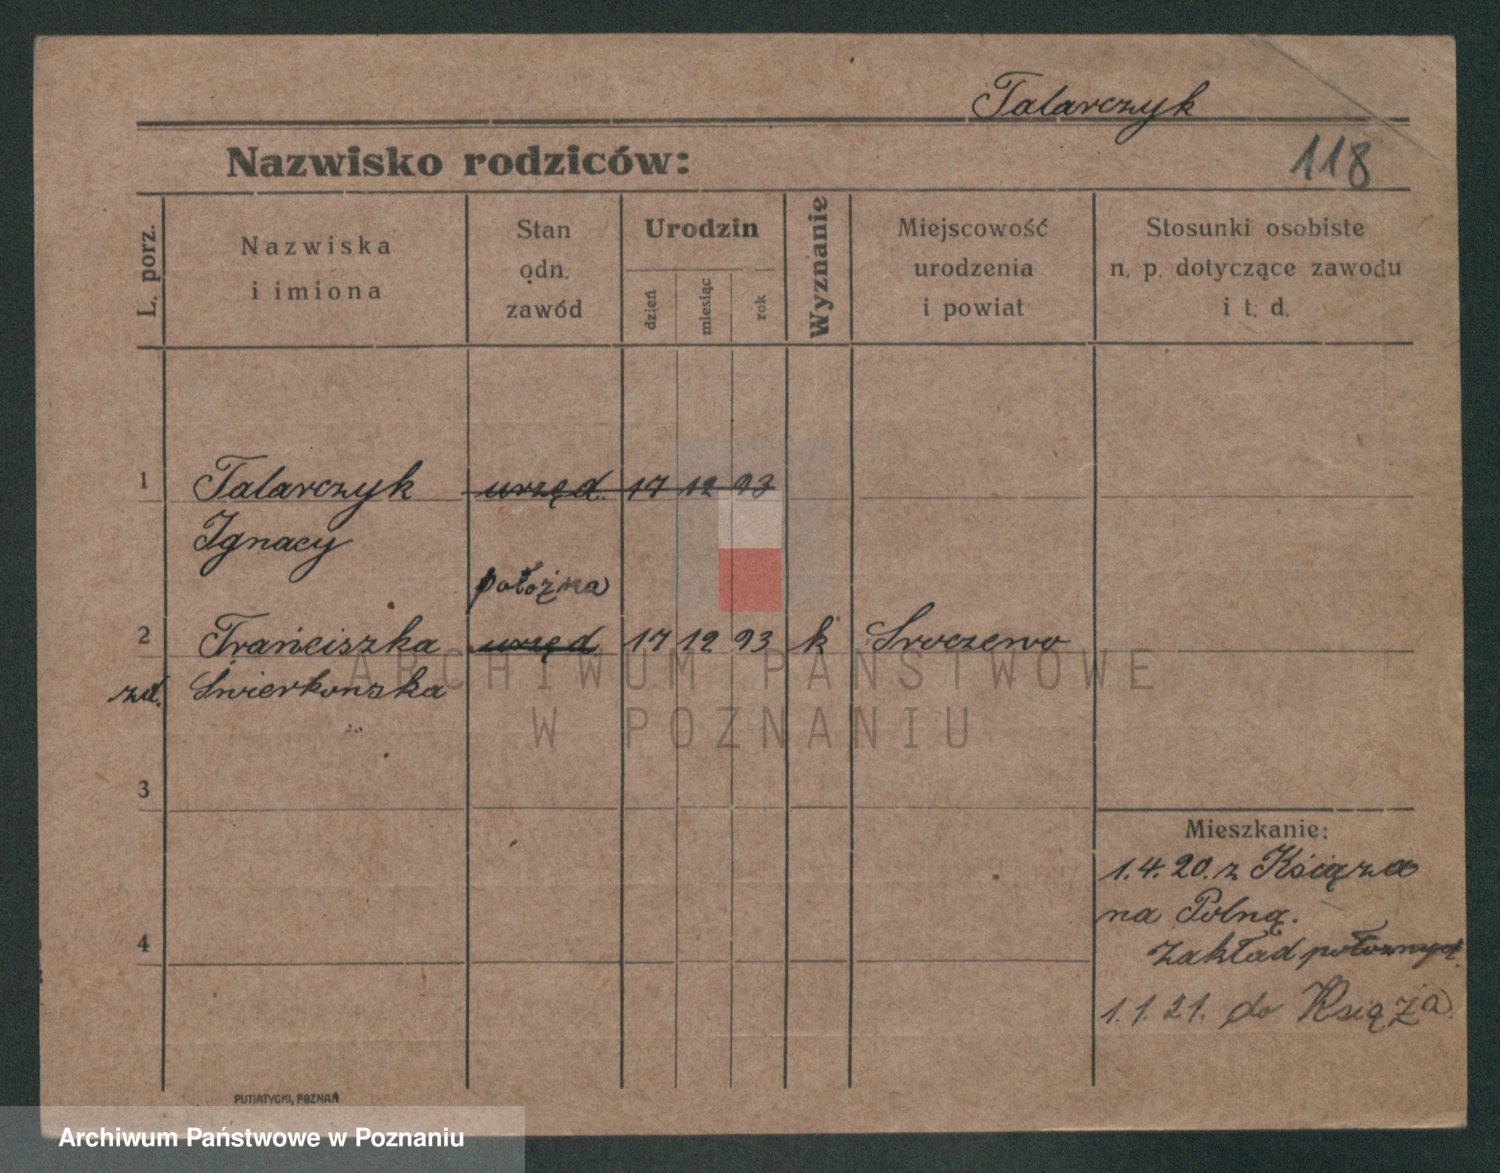 Talarczyk
Nazwisko rodziców:
118
L. porz.
Nazwiska
i imiona
Stan
odn.
zawód
Urodzin
dzień
miesiąc
rok
Wyznanie
Miejscowość
urodzenia
i powiat
Stosunki osobiste
n. p. dotyczące zawodu
i t. d.
1 Talarczyk urzęd. 17 12 93
Ignacy
położna
2 Frańciszka urzęd 17 12 93 k Sroczewo
zd. Świerkonska
ARCHIWUM PAŃSTWOWE
W POZNANIU
3
Mieszkanie:
1.4.20. z Książa
na Polną.
4
Zakład położnych
1.1.21. do Książa
PUTIATYCKI, POZNAŃ
Archiwum Państwowe w Poznaniu